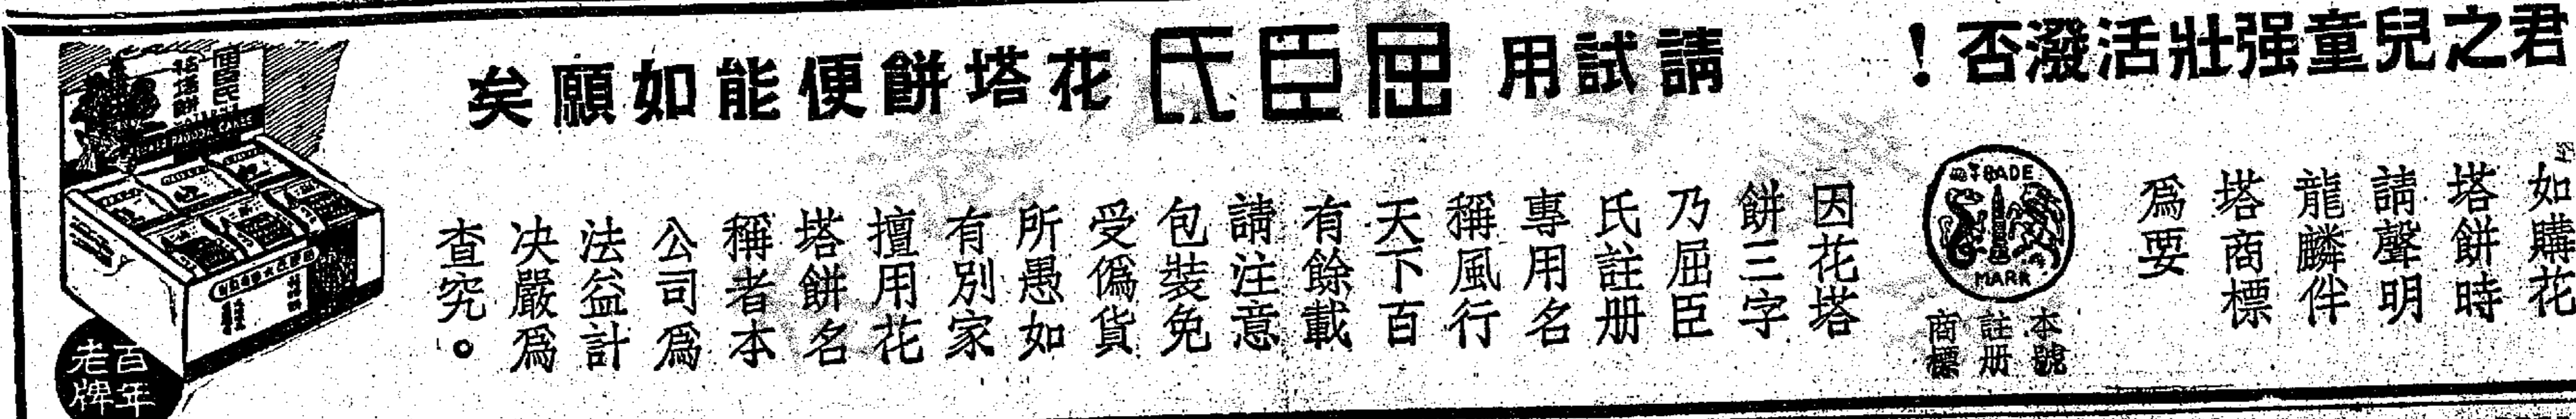 君之兒童强壯活潑否！
請試用屈臣氏花塔餅便能如願矣
如購花
塔餅時
請聲明
龍麟伴
塔商標
爲要
TRADE
MARK
本號
註册
商標
因花塔
餅三字
乃屈臣
氏註册
專用名
稱風行
天下百
有餘載
請注意
包裝免
受僞貨
所愚如
有別家
擅用花
塔餅名
稱者本
公司爲
法益計
决嚴爲
查究。
屈臣氏
花塔餅
百年
老牌